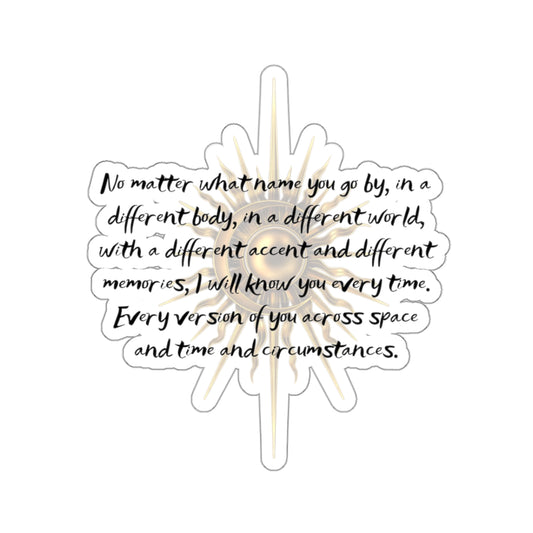 No matter what name you go by, in a
different body, in a different world,
with a different accent and different
memories, I will know you every time.
Every version of you across space
and time and circumstances.